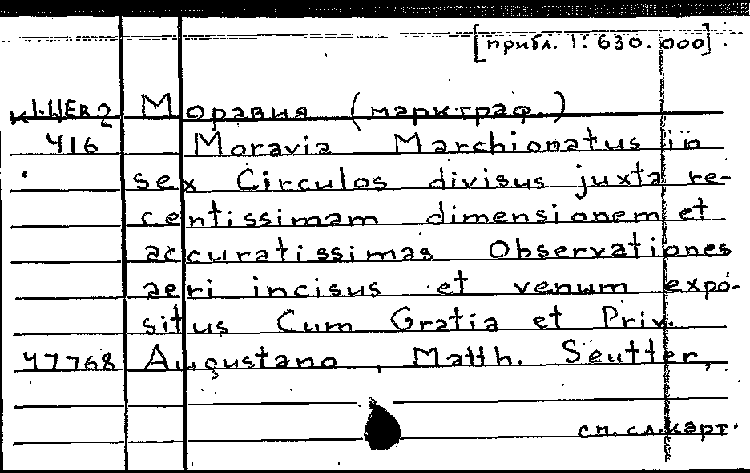 [прибл. 1:630.000]
К1-ЦЕВ 2 Моравия (маркграф.)
416 Moravia Marchionatus in
sex Circulos divisus juxta re-
centissimam dimensionem et
accuratissimas Observationes
aeri incisus et venum expo-
situs Cum Gratia et Priv.
47768 Augustano, Matth. Seutter,
сл. сл. карт.